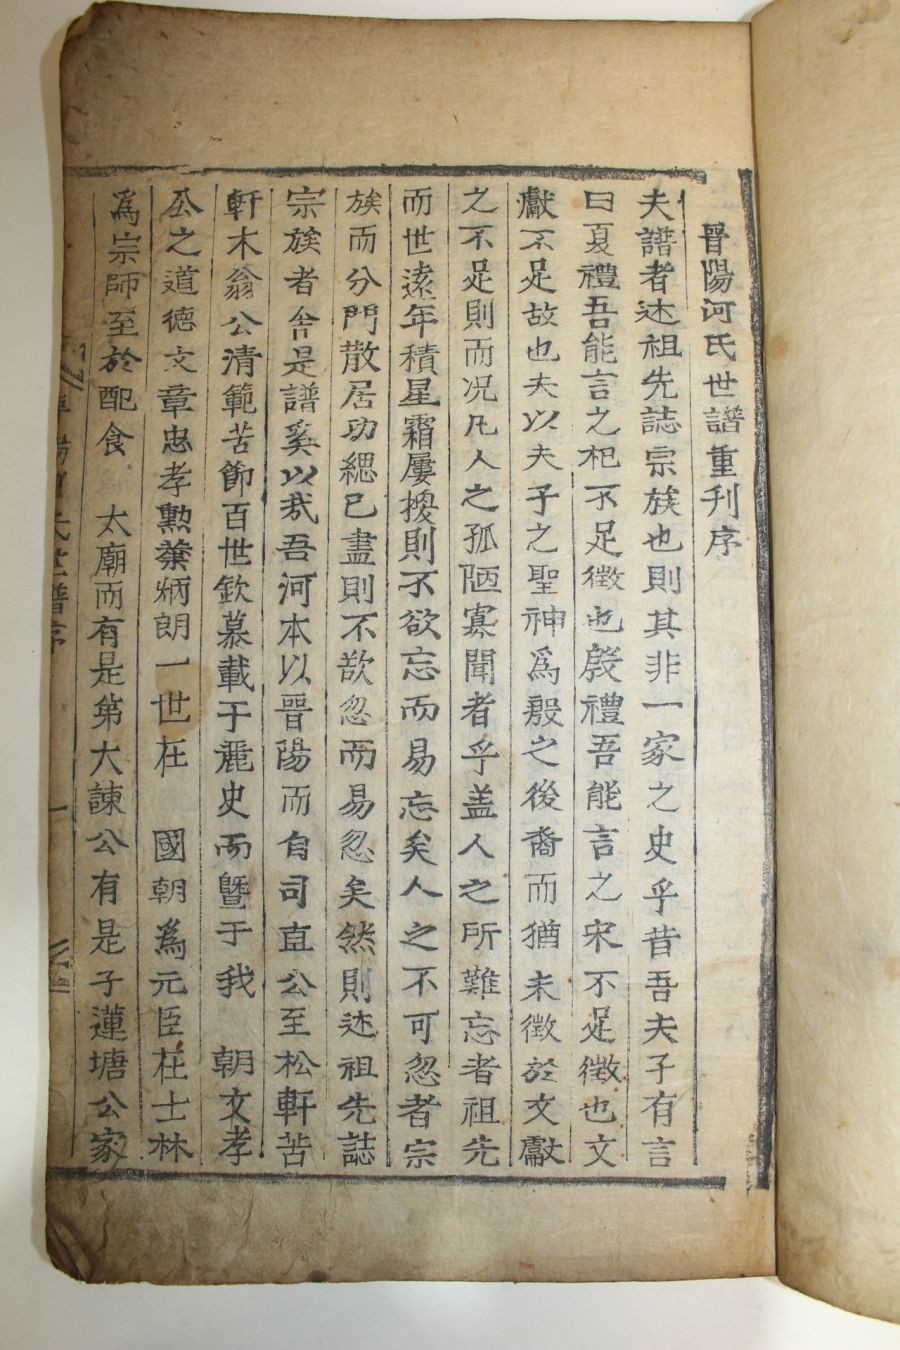 晉陽河氏世譜重刋序
夫譜者述祖先誌宗族也則其非一家之史乎昔吾夫子有言
曰夏禮吾能言之杞不足徵也殷禮吾能言之宋不足徵也文
獻不足故也夫以夫子之聖神爲殷之後裔而猶未徵於文獻
之不足則而况凡人之孤陋寡聞者乎盖人之所難忘者祖先
而世遠年積星霜屢換則不欲忘而易忘矣人之不可忽者宗
族而分門散居功緦已盡則不欲忽而易忽矣然則述祖先誌
宗族者舍是譜奚以哉吾河本以晋陽而自司直公至松軒苦
軒木翁公清範苦節百世欽慕載于麗史而曁于我 朝文孝
公之道德文章忠孝勲業炳朗一世在 國朝爲元臣在士林
爲宗師至於配食 太廟而有是第大諫公有是子蓮塘公家
陽河氏世譜序
一